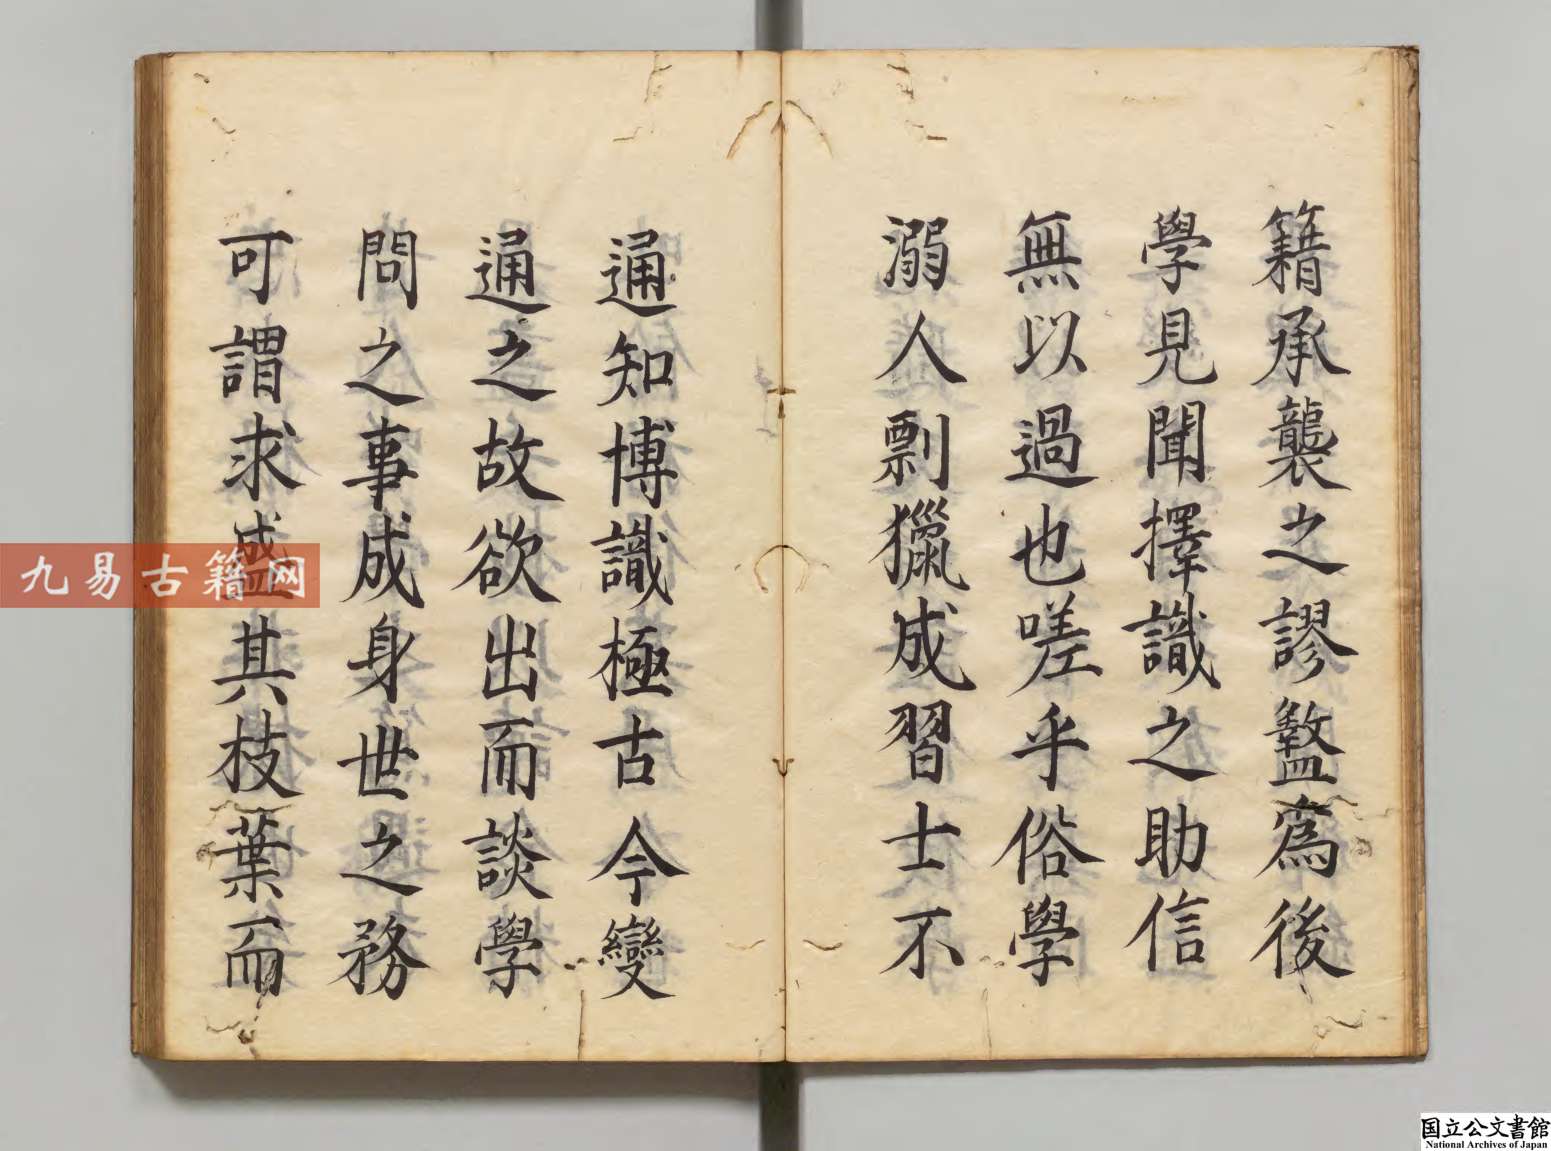 籍承襲之謬盭爲後
學見聞擇識之助信
無以過也嗟乎俗學
溺人剽獵成習士不
通知博識極古今變
通之故欲出而談學
問之事成身世之務
可謂求盛其枝葉而
九易古籍网
国立公文書館
National Archives of Japan